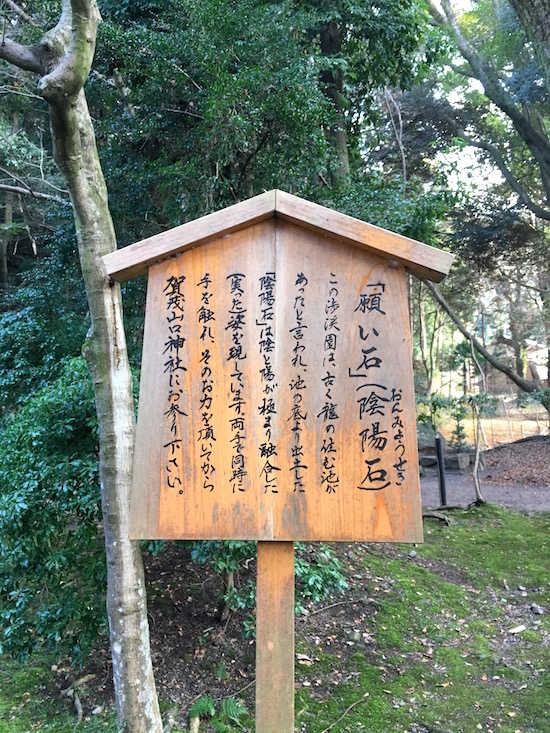 「願い石」(陰陽石)
おんみょうせき
この渉渓園は、古く龍の住む池が
あったと言われ、池の底より出土した
「陰陽石」は陰と陽が極まり融合した
(実った)姿を現しています。両手で同時に
手を触れ、そのお力を頂してから
賀茂山口神社にお参り下さい。